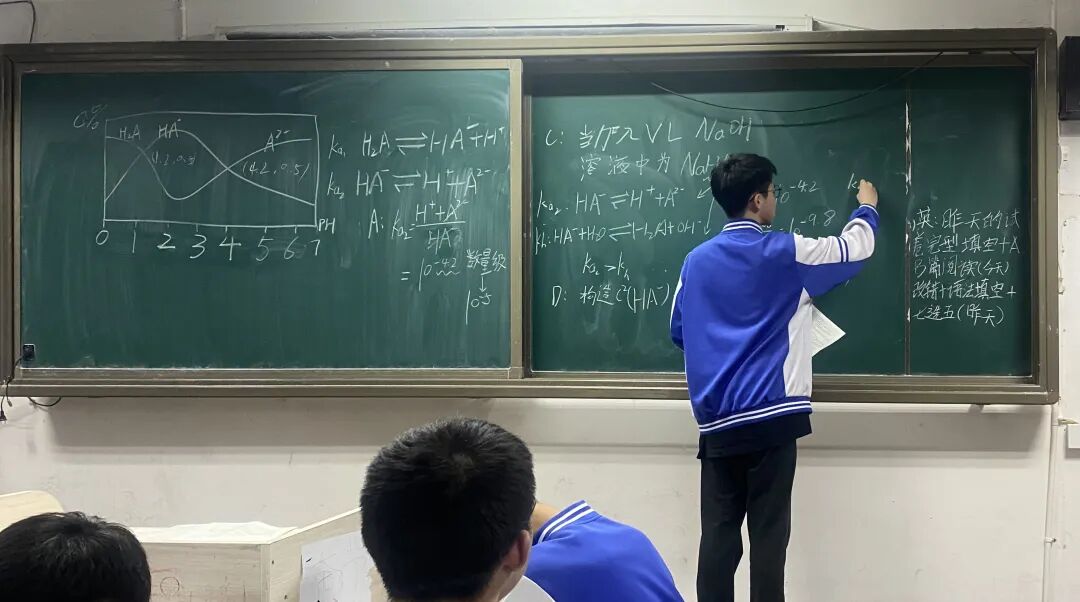 H₂A HA⁻ A²⁻
(4.2, 0.5)
0 1 2 3 4 5 6 7 PH
ka₁ H₂A ⇌ HA⁻+H⁺
ka₂ HA⁻ ⇌ H⁺+A²⁻
A: ka₂ H⁺+A²⁻
HA⁻
= 10⁻⁴·² 数量级
↓
10⁻⁵
C: 当加入 VL NaOH
溶液中为 NaH
ka₂: HA⁻ ⇌ H⁺+A²⁻
kh: HA⁻+H₂O ⇌ H₂A+OH⁻
ka₂ > kh
D: 构造 c²(HA⁻)
-4.2
-9.8
k
英: 昨天的试
卷完型填空+A
B篇阅读(今天)
改错+语法填空+
七选五(昨天)